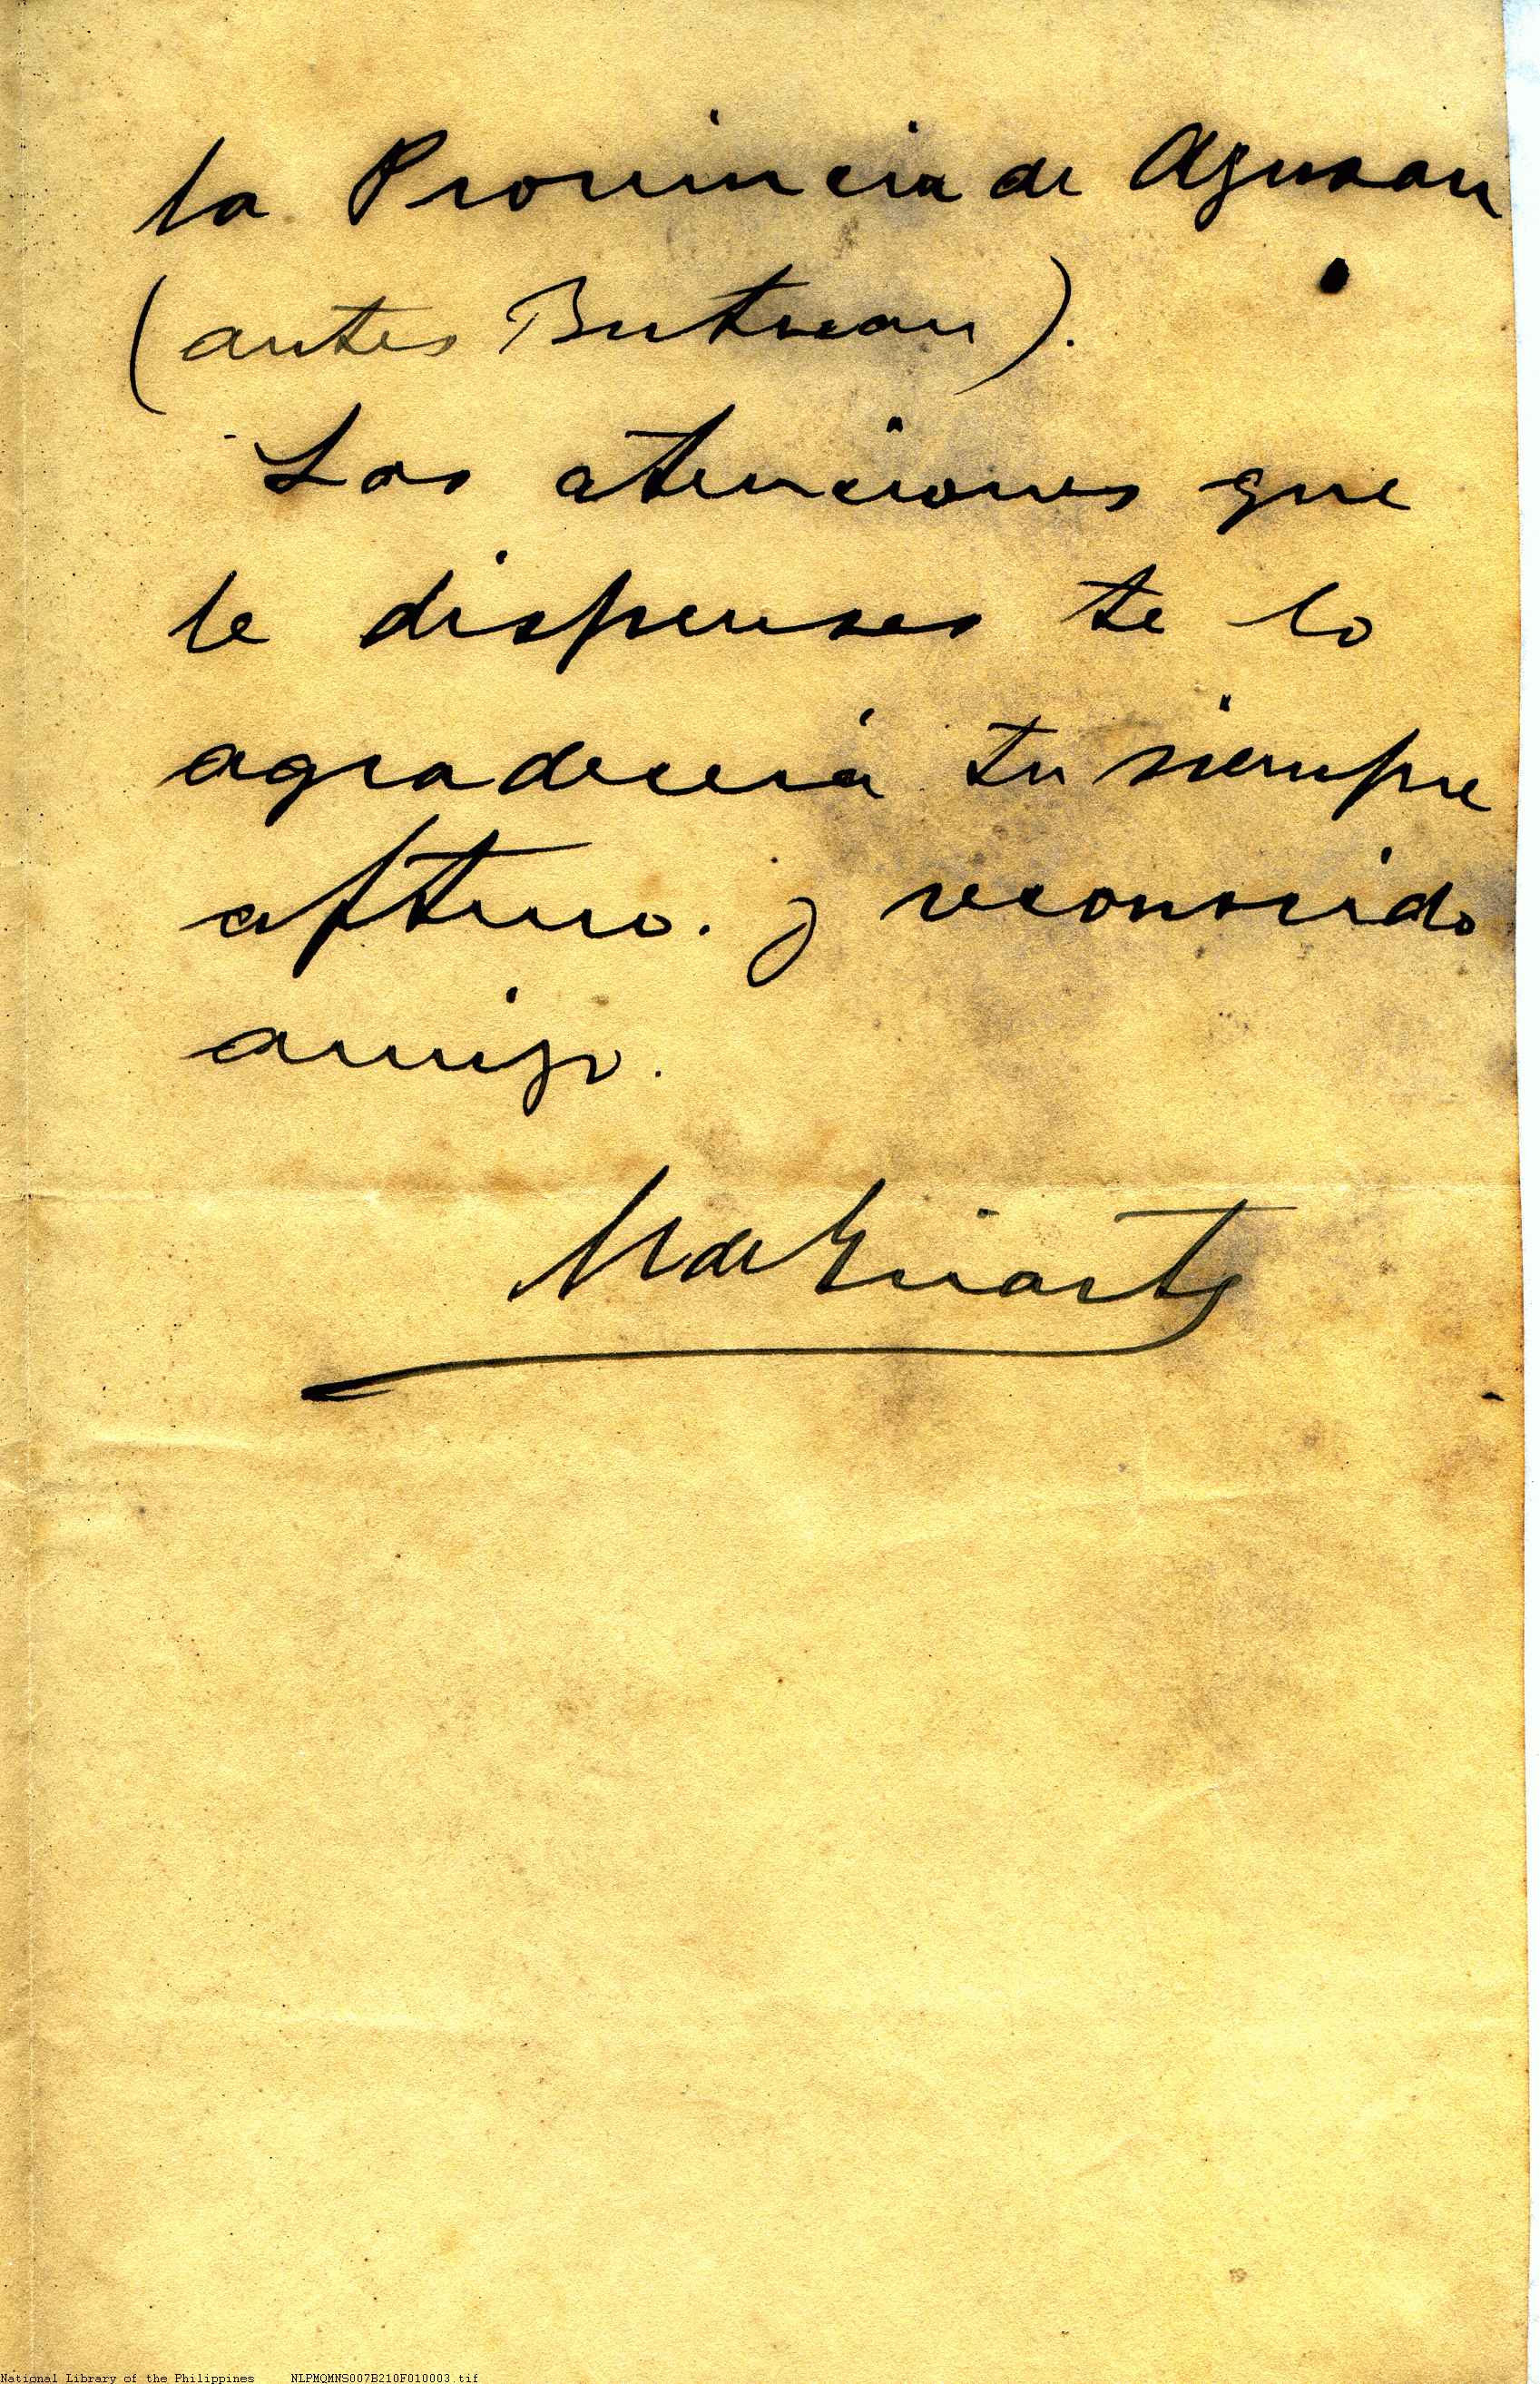 la Provincia de Agusan
(antes Butuan).
Las atenciones que
le dispenses te lo
agradecerá tu siempre
aftmo. y reconocido
amigo.
National Library of the Philippines NLPMQMNS007B210F010003.tif